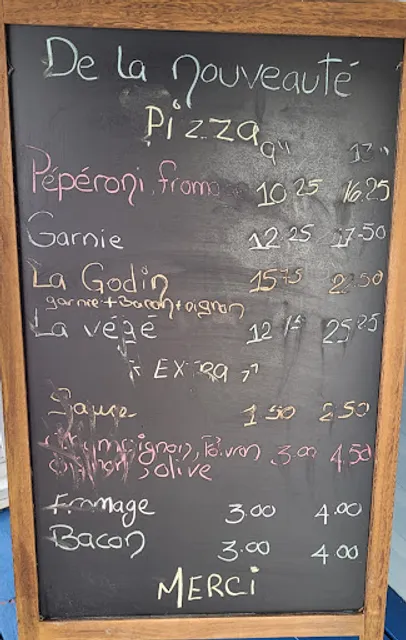 De la nouveauté
Pizza
9" 13"
Pépéroni, from 10 25 16.25
Garnie 12 25 17-50
La Godin 15 75 50
garnie + Bacon + oignon
La végé 12 25 25
" EXTRA "
Sauce 1 50 2.50
Poivron 3.00 4,50
olive
Fromage 3.00 4.00
Bacon 3.00 4.00
MERCi